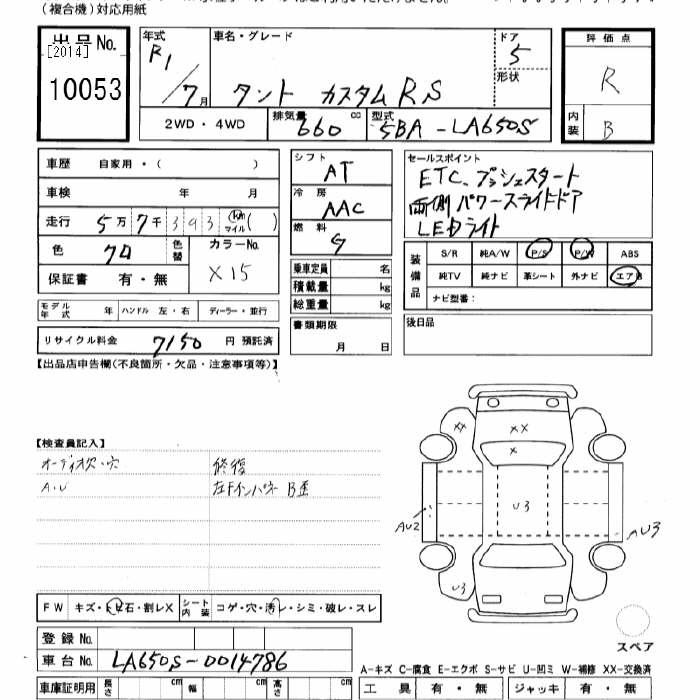 (複合機)対応用紙
出品No.
[2014]
10053
年式
R1
7月
車名・グレード
タント カスタムRS
ドア
5
形状
2WD・4WD
排気量
660 cc
型式
5BA-LA650S
評価点
R
内装
B
車歴 自家用・( )
車検 年 月
走行 5万7千393 km マイル( )
色 クロ 色替 カラーNo.
X15
保証書 有・無
モデル年式 年 ハンドル 左・右 ディーラー・並行
リサイクル料金 7150 円 預託済
シフト
AT
冷房
AAC
燃料
G
乗車定員 名
積載量 kg
総重量 kg
書類期限
月 日
セールスポイント
ETC、プッシュスタート
両側パワースライドドア
LEDライト
装備品
S/R 純A/W P/S P/W ABS
純TV 純ナビ 革シート 外ナビ エアB
ナビ型番:
後日品
【出品店申告欄(不良箇所・欠品・注意事項等)】
【検査員記入】
オーディオ欠・穴
A.U
修復
左Fインパネ B歪
XX
XX
X
U3
AU2
AU3
U3
スペア
FW キズ・トビ石・割レX シート内装 コゲ・穴・汚レ・シミ・破レ・スレ
登録No.
車台No. LA650S-0014786
車庫証明用 長さ cm 幅 cm 高さ cm
A-キズ C-腐食 E-エクボ S-サビ U-凹ミ W-補修 XX-交換済
工具 有・無 ジャッキ 有・無